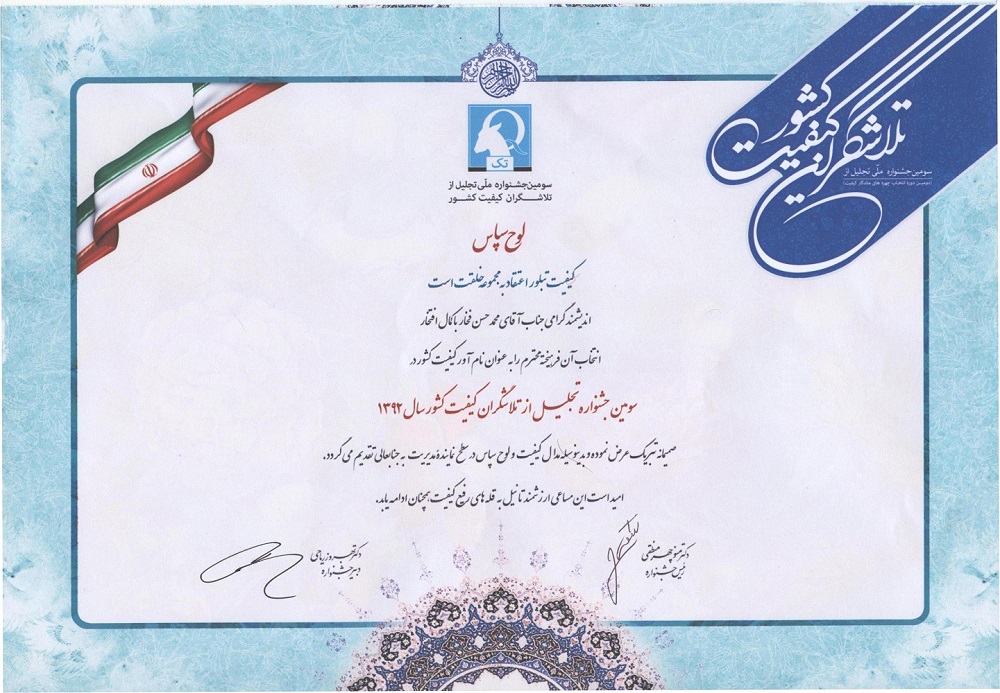 تلاشگران کیفیت کشور
سومین جشنواره ملی تجلیل از
(دومین دوره انتخاب چهره های ماندگار کیفیت)
تک
سومین جشنواره ملّی تجلیل از
تلاشگران کیفیت کشور
لوح سپاس
کیفیت تبلور اعتقاد به مجموعه خلقت است
اندیشمند گرامی جناب آقای محمد حسن فخار با کمال افتخار
انتخاب آن فرهیخته محترم را به عنوان نام آور کیفیت کشور در
سومین جشنواره تجلیل از تلاشگران کیفیت کشور سال ۱۳۹۲
صمیمانه تبریک عرض نموده و بدینوسیله مدال کیفیت و لوح سپاس در سطح نماینده مدیریت به جنابعالی تقدیم می گردد.
امید است این مساعی ارزشمند تا نیل به قله های رفیع کیفیت همچنان ادامه یابد.
دکتر منوچهر منطقی
رئیس جشنواره
دکتر بهروز ریاحی
دبیر جشنواره